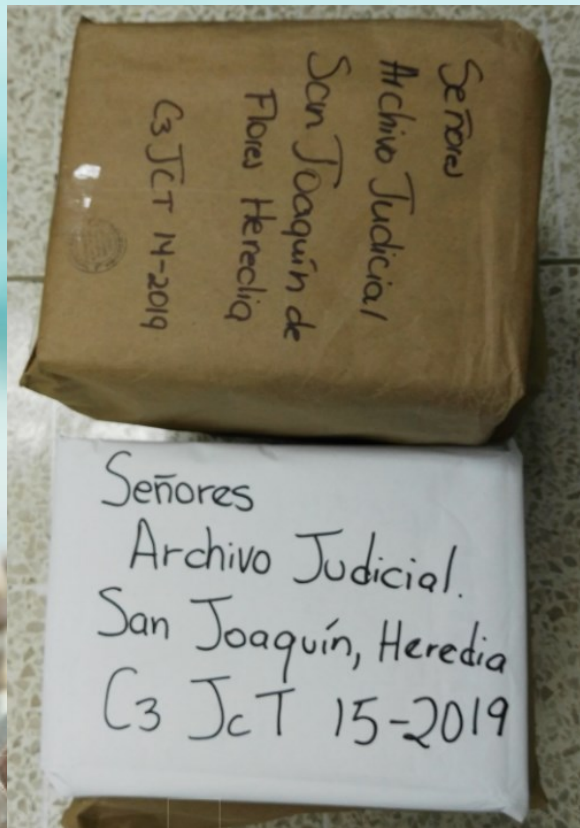 Señores
Archivo Judicial
San Joaquín de
Flores Heredia
C3 JCT 14-2019
Señores
Archivo Judicial.
San Joaquín, Heredia
C3 JcT 15-2019